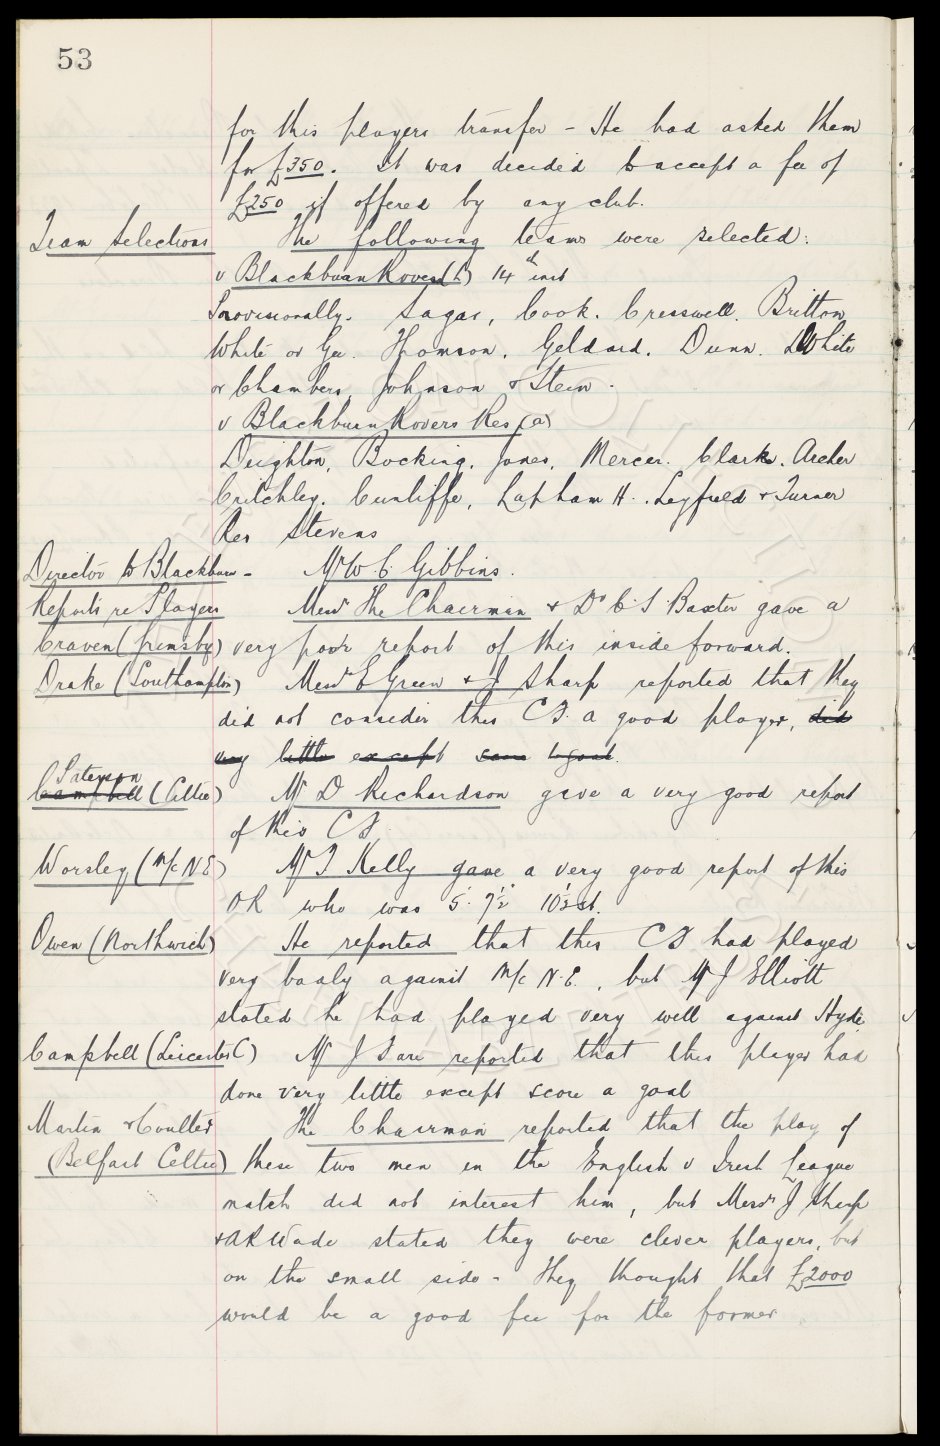 53
for this players transfer - He had asked them
for £350. It was decided to accept a fee of
£250 if offered by any club.
Team Selections The following teams were selected:
v Blackburn Rovers (h) 14th inst
Provisionally. Sagar, Cook. Cresswell. Britton,
White or Gee. Thomson. Geldard. Dunn. TWhite
or Chambers, Johnson & Stein.
v Blackburn Rovers Res (a)
Deighton, Bocking. Jones, Mercer. Clark. Archer
Critchley. Cunliffe, Lapham H. Leyfield & Turner
Res Stevens
Director to Blackburn - Mr W C Gibbins.
Reports re Players Messrs The Chairman & Dr C S Baxter gave a
Craven (Grimsby) very poor report of this inside forward.
Drake (Southampton) Messrs E Green & J Sharp reported that they
did not consider this CF a good player, did
very little except score 1 goal.
Paterson
Campbell (Celtic) Mr D Richardson gave a very good report
of this CF
Worsley (M/c N E) Mr T Kelly gave a very good report of this
OR who was 5' 7½" 10½ st.
Owen (Northwich) He reported that this CF had played
very badly against M/c N.E., but Mr J Elliott
stated he had played very well against Hyde.
Campbell (Leicester C) Mr J Fare reported that this player had
done very little except score a goal
Martin & Coulter The Chairman reported that the play of
(Belfast Celtic) these two men in the English v Irish League
match did not interest him, but Messrs J Sharp
& AR Wade stated they were clever players, but
on the small side - They thought that £2000
would be a good fee for the former.